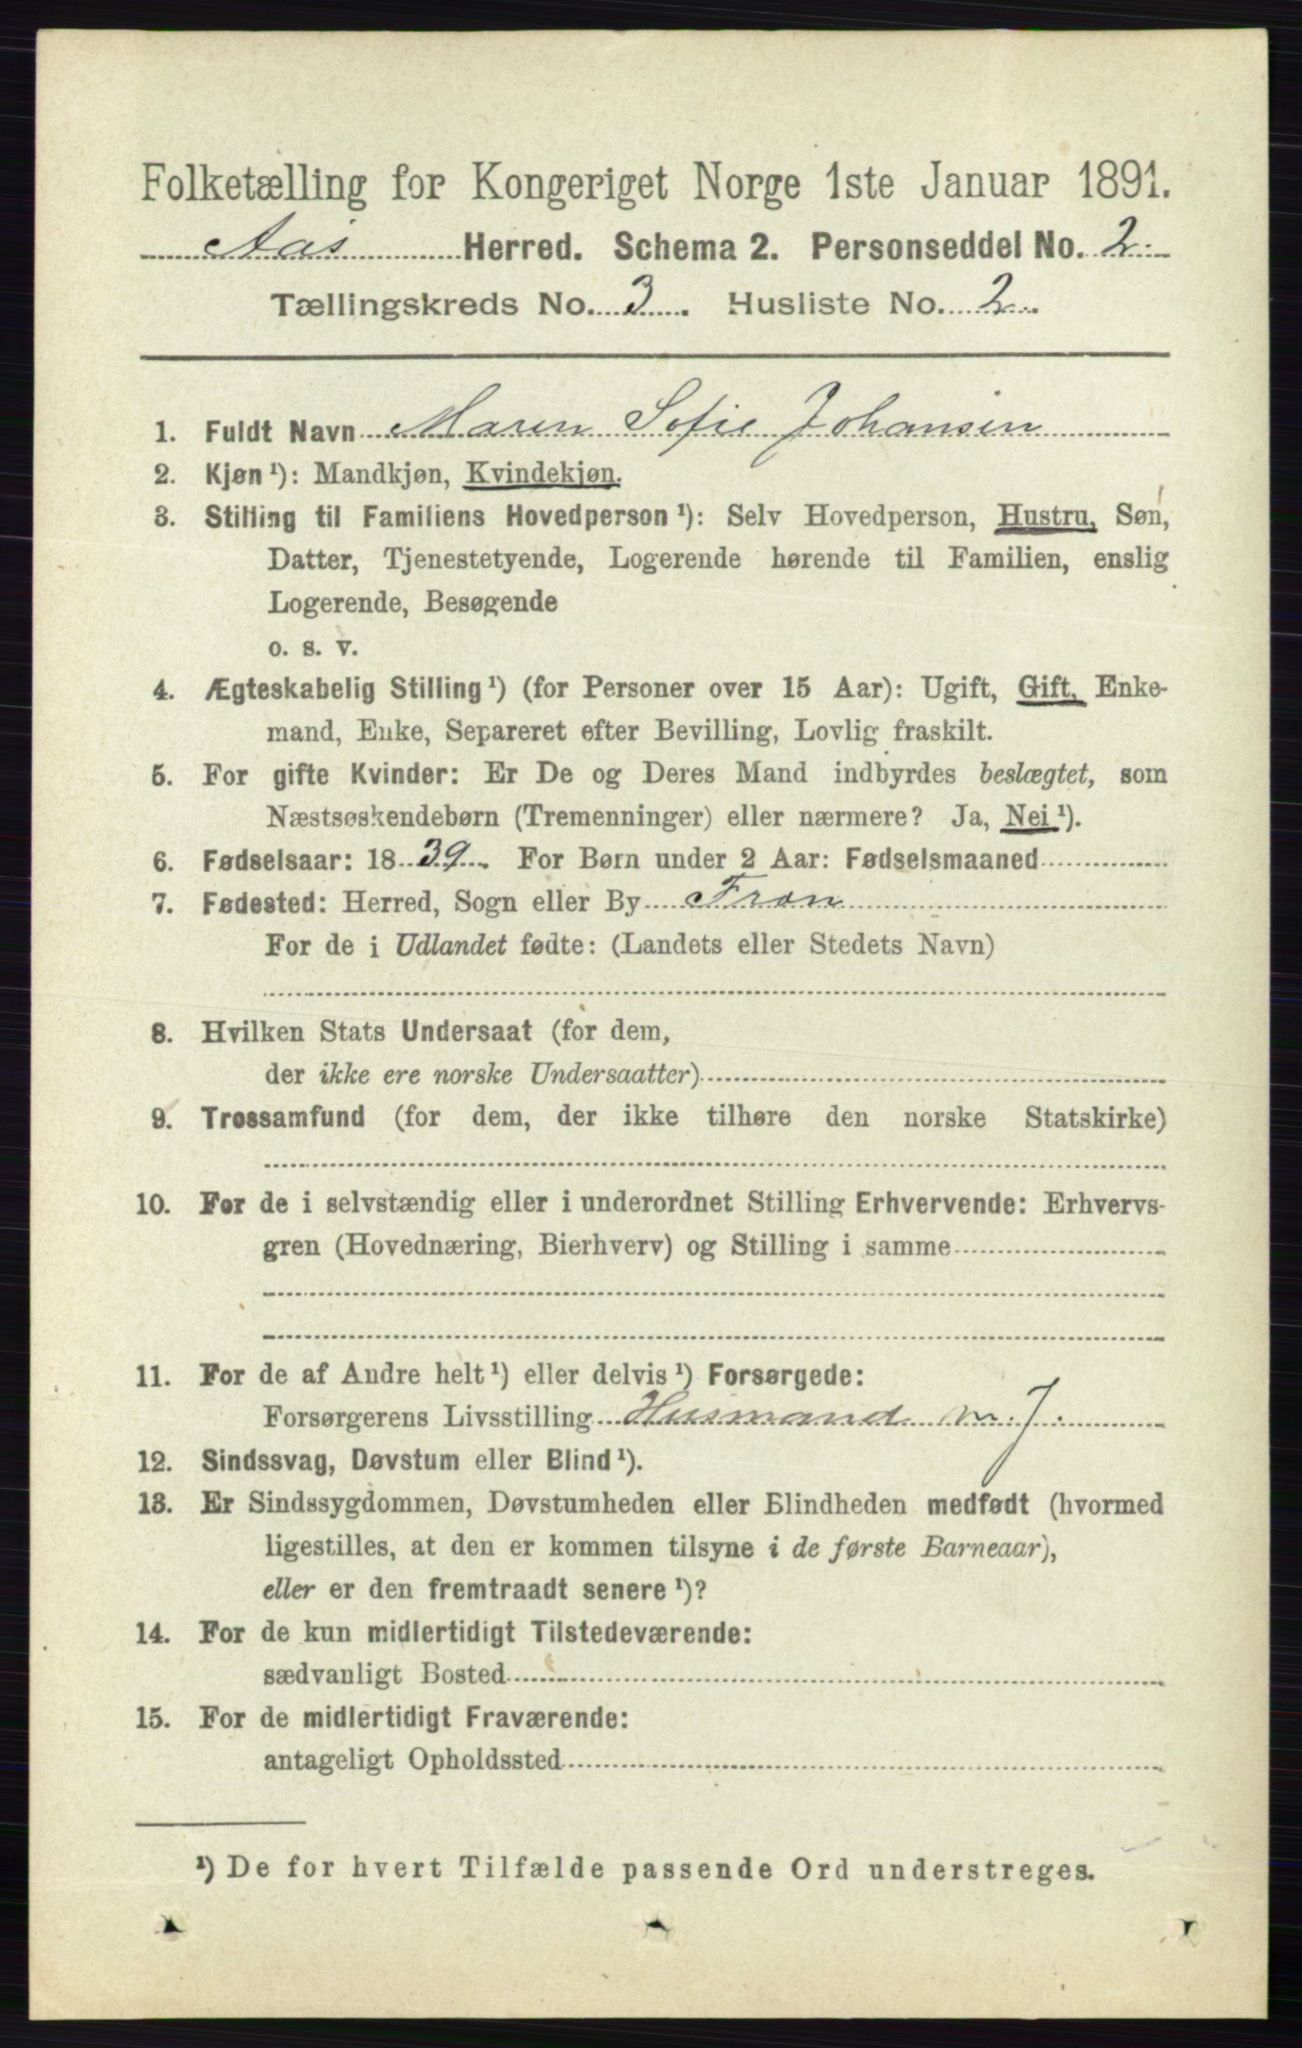 Folketælling for Kongeriget Norge 1ste Januar 1891.
Aas Herred. Schema 2. Personseddel No. 2.
Tællingskreds No. 3. Husliste No. 2.
1. Fuldt Navn Maren Sofie Johansen
2. Kjøn ¹): Mandkjøn, Kvindekjøn.
3. Stilling til Familiens Hovedperson ¹): Selv Hovedperson, Hustru, Søn,
Datter, Tjenestetyende, Logerende hørende til Familien, enslig
Logerende, Besøgende
o. s. v.
4. Ægteskabelig Stilling ¹) (for Personer over 15 Aar): Ugift, Gift, Enke-
mand, Enke, Separeret efter Bevilling, Lovlig fraskilt.
5. For gifte Kvinder: Er De og Deres Mand indbyrdes beslægtet, som
Næstsøskendebørn (Tremenninger) eller nærmere? Ja, Nei ¹).
6. Fødselsaar: 1839. For Børn under 2 Aar: Fødselsmaaned
7. Fødested: Herred, Sogn eller By Fron
For de i Udlandet fødte: (Landets eller Stedets Navn)
8. Hvilken Stats Undersaat (for dem,
der ikke ere norske Undersaatter)
9. Trossamfund (for dem, der ikke tilhøre den norske Statskirke)
10. For de i selvstændig eller i underordnet Stilling Erhvervende: Erhvervs-
gren (Hovednæring, Bierhverv) og Stilling i samme
11. For de af Andre helt ¹) eller delvis ¹) Forsørgede:
Forsørgerens Livsstilling Husmand m. J.
12. Sindssvag, Døvstum eller Blind ¹).
13. Er Sindssygdommen, Døvstumheden eller Blindheden medfødt (hvormed
ligestilles, at den er kommen tilsyne i de første Barneaar),
eller er den fremtraadt senere ¹)?
14. For de kun midlertidigt Tilstedeværende:
sædvanligt Bosted
15. For de midlertidigt Fraværende:
antageligt Opholdssted
¹) De for hvert Tilfælde passende Ord understreges.